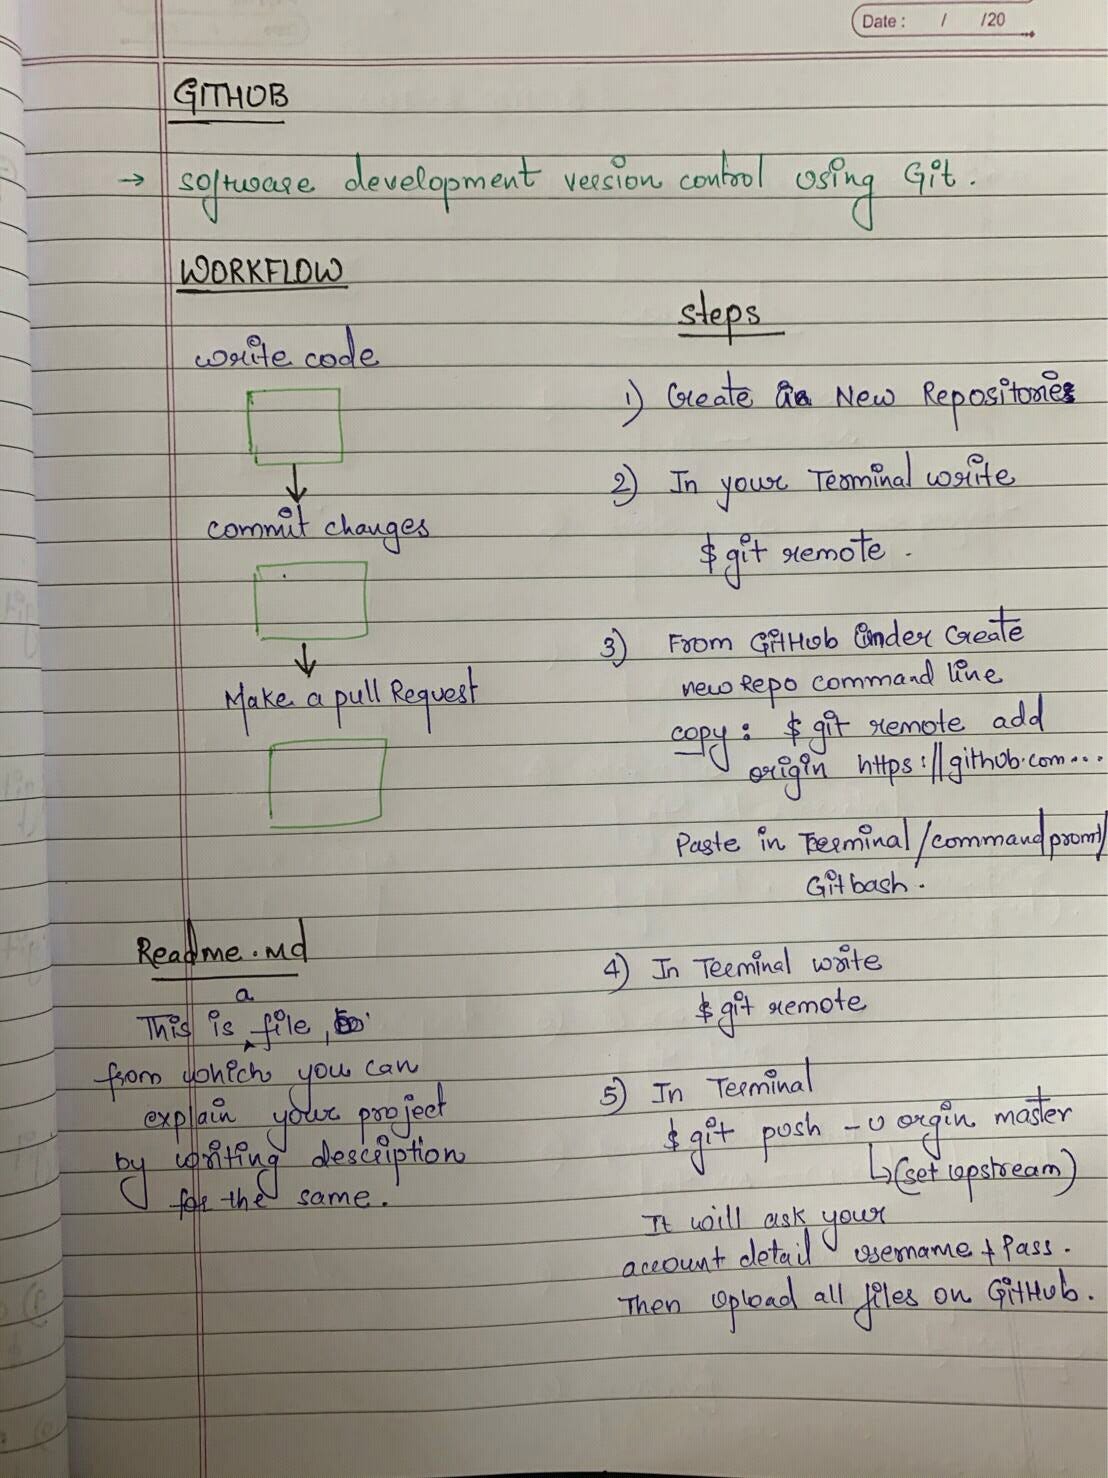 Date : / /20
GITHUB
→ software development version control using Git.
WORKFLOW
write code
↓
commit changes
↓
Make a pull Request
steps
1) Create a New Repositories
2) In your Terminal write
$ git remote .
3) From GitHub Under Create
new Repo command line
copy: $ git remote add
origin https://github.com...
Paste in Terminal/command promt/
Git bash.
Readme.md
This is a file,
from which you can
explain your project
by writing description
for the same.
4) In Terminal write
$ git remote
5) In Terminal
$ git push -u orgin master
↳(set upstream)
It will ask your
account detail username + Pass.
Then Upload all files on GitHub.